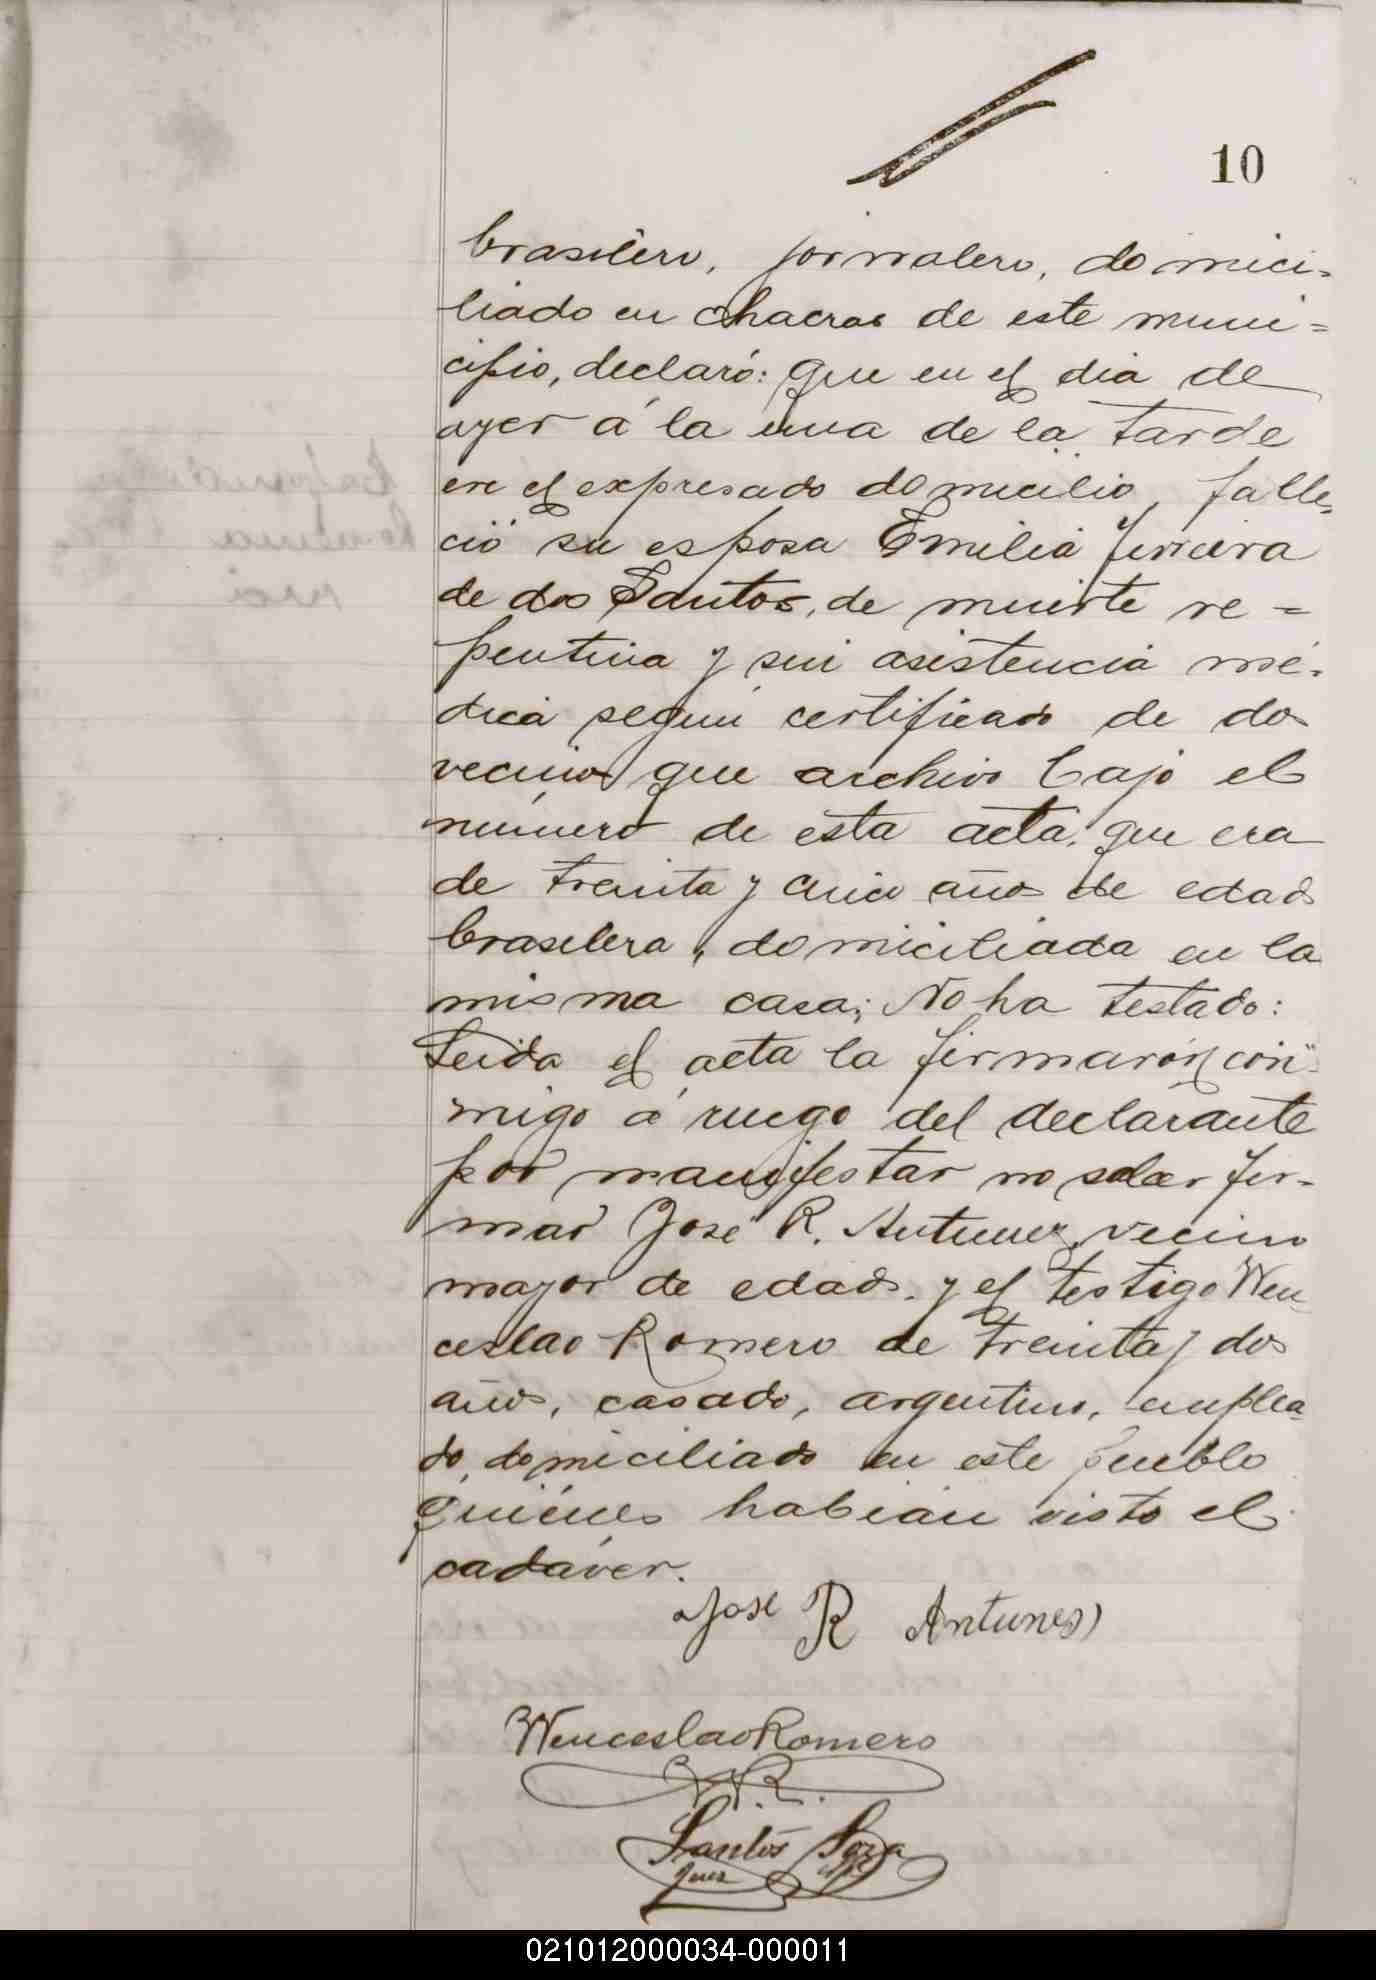 10
brasilero, jornalero, domici-
liado en chacras de este muni=
cipio, declaró: que en el dia de
ayer á la una de la tarde
en el expresado domicilio, falle-
ció su esposa Emilia Ferreira
de dos Santos, de muerte re=
pentina y sin asistencia mé-
dica segun certificado de dos
vecinos que archivo bajo el
número de esta acta, que era
de treinta y cinco años de edad
brasilera, domiciliada en la
misma casa; No ha testado:
Leida el acta la firmarón con-
migo á ruego del declarante
por manifestar no saber fir-
mar José R. Antunez, vecino
mayor de edad, y el testigo Wen-
ceslao Romero de treinta y dos
años, casado, argentino, emplea-
do, domiciliado en este pueblo
quiénes habian visto el
cadáver.
José R Antunes
Wenceslao Romero
W.R.
Santos Soza
Juez
021012000034-000011